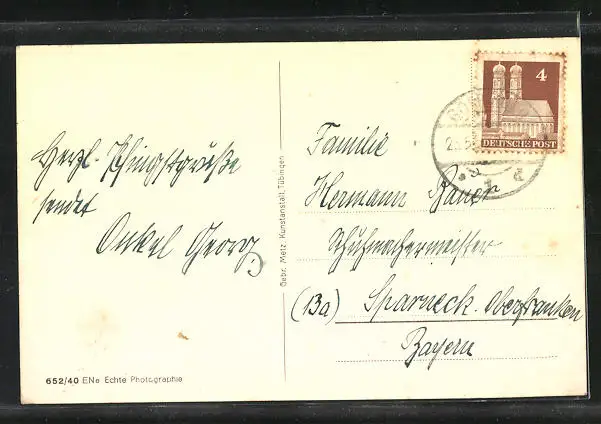 Herzl. Pfingstgrüße
sendet
Onkel Georg
Gebr. Metz, Kunstanstalt, Tübingen
4
DEUTSCHE POST
Familie
Hermann Bauer
Schuhmachermeister
(13a) Sparneck. Oberfranken
Bayern
652/40 ENe Echte Photographie